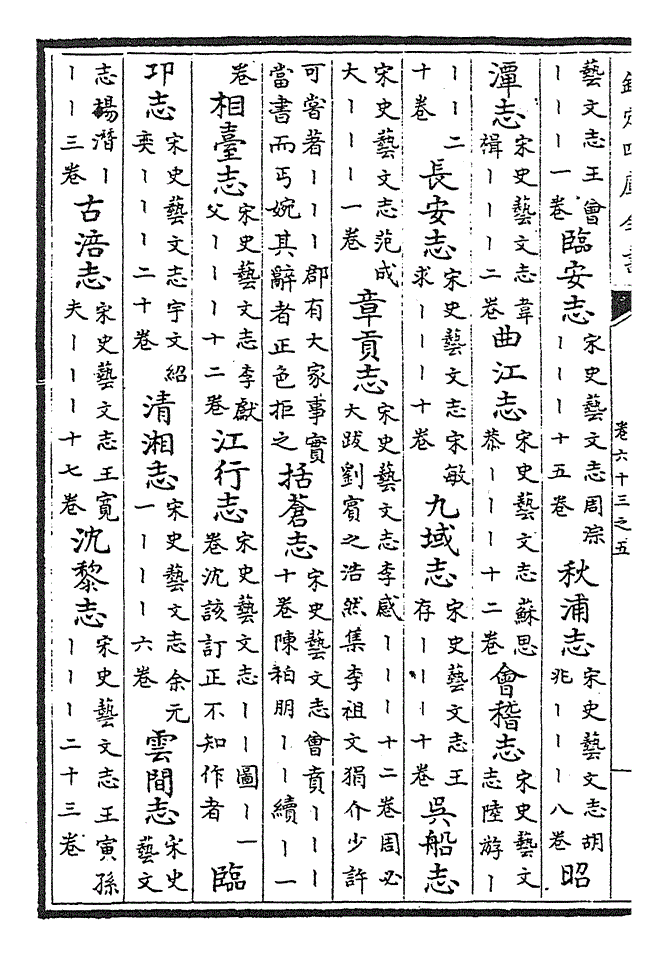 欽定四庫全書
卷六十三之五
藝文志王曾｜｜｜一卷 臨安志 宋史藝文志周淙｜｜｜十五卷 秋浦志 宋史藝文志胡兆｜｜｜八卷 昭
潭志 宋史藝文志韋楫｜｜｜二卷 曲江志 宋史藝文志蘇思恭｜｜｜十二卷 會稽志 宋史藝文志陸游｜
｜｜二十卷 長安志 宋史藝文志宋敏求｜｜｜十卷 九域志 宋史藝文志王存｜｜｜十卷 吳船志
宋史藝文志范成大｜｜｜一卷 章貢志 宋史藝文志李感｜｜｜十二卷周必大跋劉賓之浩然集李祖文狷介少許
可嘗著｜｜｜郡有大家事實當書而丐婉其辭者正色拒之 括蒼志 宋史藝文志會賁｜｜｜十卷陳柏朋｜｜續｜一
卷 相臺志 宋史藝文志李獻父｜｜｜十二卷 江行志 宋史藝文志｜｜圖｜一卷沈該訂正不知作者 臨
邛志 宋史藝文志宇文紹奕｜｜｜二十卷 清湘志 宋史藝文志余元一｜｜｜六卷 雲間志 宋史藝文
志楊潛｜｜｜三卷 古涪志 宋史藝文志王寬夫｜｜｜十七卷 沈黎志 宋史藝文志王寅孫｜｜｜二十三卷